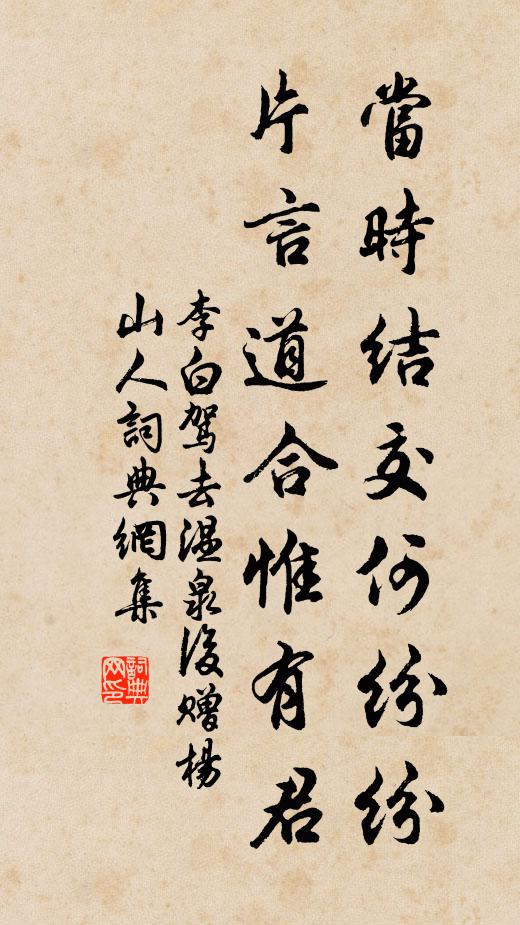 當時結交何紛紛
片言道合惟有君
李白駕去温泉後贈楊
山人詞典網集
詞典
网印